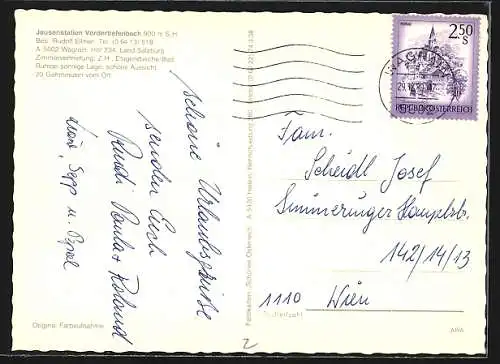 Jausenstation Vordertiefenbach 900 m S.H.
Bes. Rudolf Ellmer, Tel. (0 64 13) 518
A 5602 Wagrain, Hof 234, Land Salzburg
Zimmervermietung, Z.H., Etagendusche, Bad
Ruhige sonnige Lage, schöne Aussicht
20 Gehminuten vom Ort
schöne Urlaubsgrüße
senden Euch
Rudi Paula + Roland
Original Farbaufnahme
Postleitzahl
2,50
S
REPUBLIK ÖSTERREICH
WAGRAIN
Fam.
Scheidl Josef
Simmeringer Hauptstr.
142/14/13
1110 Wien
2